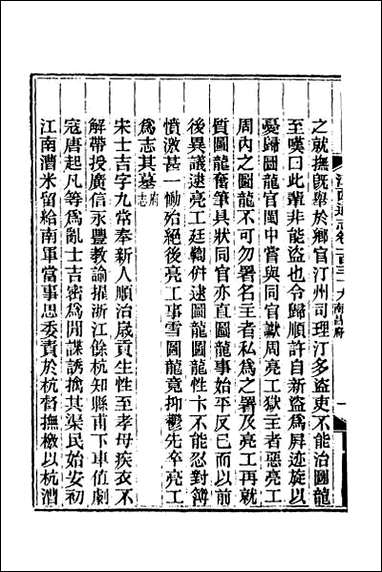 江西通志卷一百三十六南昌府 一
之就撫旣舉於鄉官汀州司理汀多盜吏不能治圖龍
至嘆曰此輩非能盜也令歸順許自新盜爲屏迹旋以
憂歸圖龍官閩中時與同官讞周亮工獄主者惡亮工
周內之圖龍不可勿署名主者私爲之署及亮工再就
質圖龍奮筆具狀同官亦直圖龍事始平反巳而以前
後異議逮亮工廷鞫併逮圖龍圖龍性卞不能忍對簿
憤激甚一慟殆絕後亮工事雪圖龍竟抑鬱先卒亮工
爲志其墓府志
宋士吉字九當奉新人順治歲貢生性至孝母疾衣不
解帶授廣信永豐教諭擢浙江餘杭知縣甫下車值劇
寇唐起凡等爲亂士吉密爲閒諜誘擒其渠民始安初
江南漕米留給南軍當事思委責於杭督撫檄以杭漕